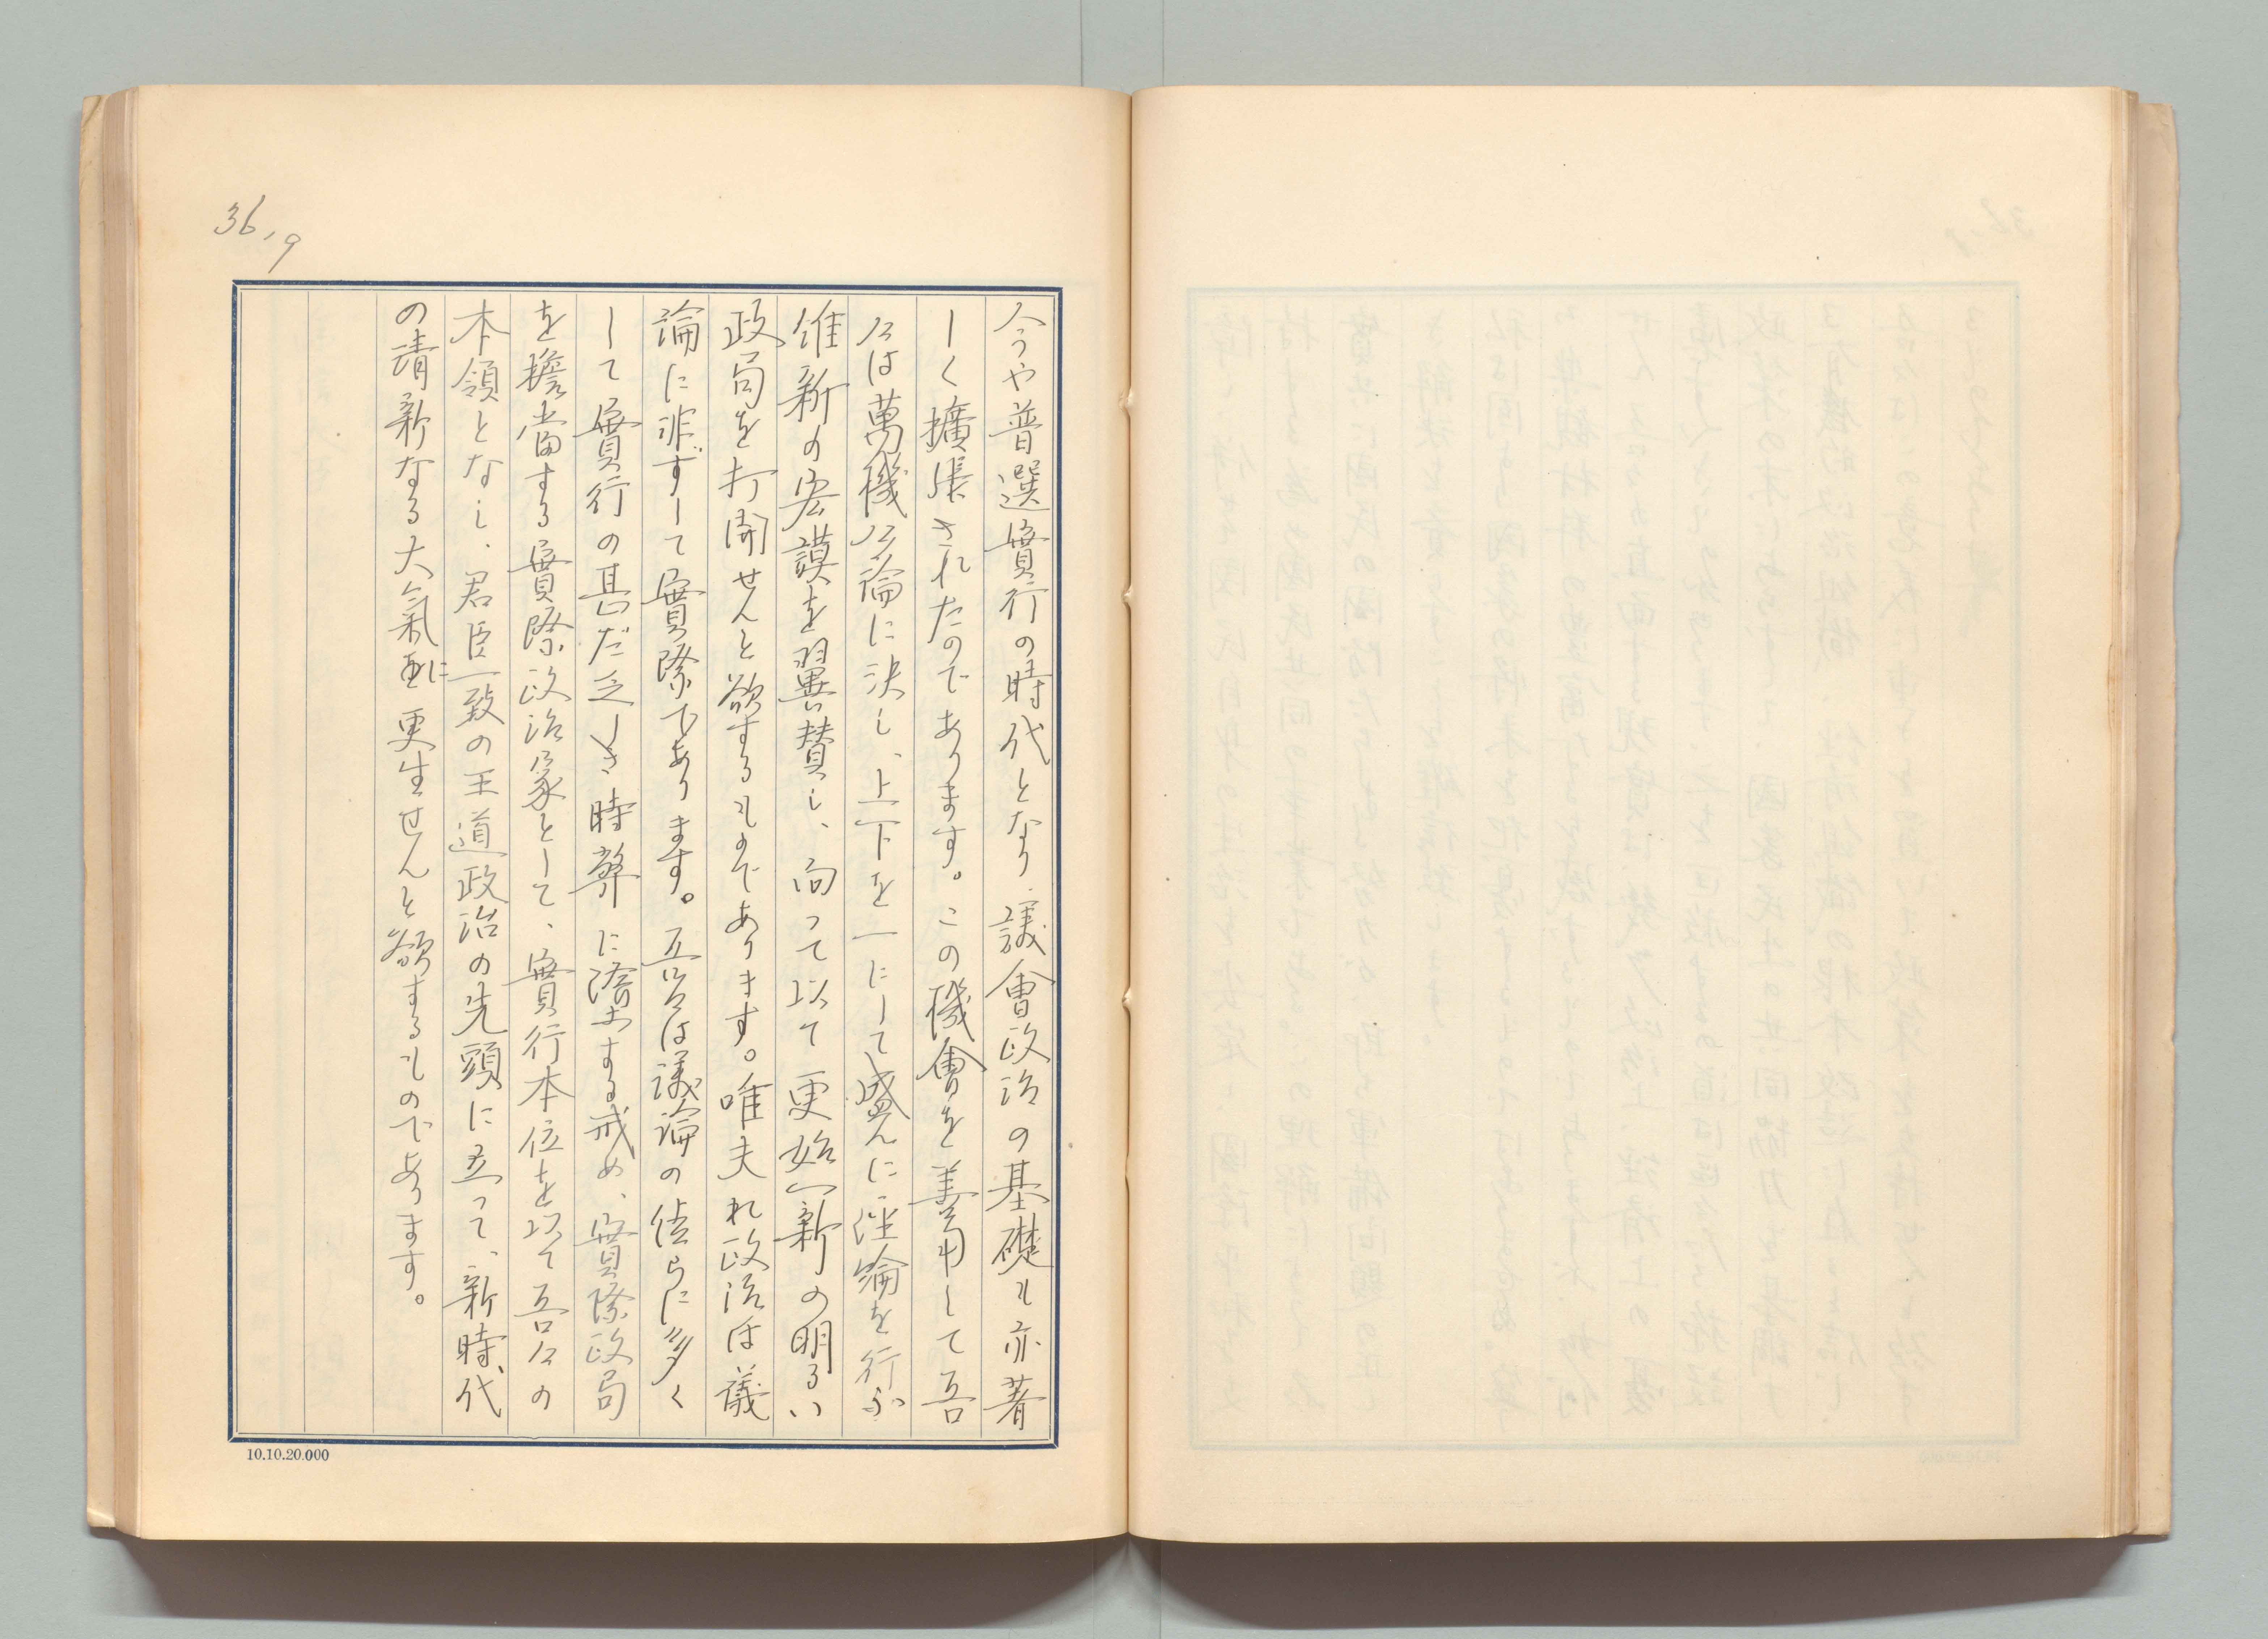 36,9
今や普選實行の時代となり、議會政治の基礎も亦著
しく擴張されたのであります。この機會を善用して吾
々は萬機公論に決し、上下を一にして盛んに經綸を行ふ
維新の宏謨を翼賛し、向って以て更始一新の明るい
政局を打開せんと欲するものであります。唯夫れ政治は議
論に非ずして實際であります。吾々は議論の徒らに多く
して實行の甚だ乏しき時弊に墮するを戒め、實際政局
を擔當する實際政治家として、實行本位を以て吾々の
本領となし、君臣一致の王道政治の先頭に立って、新時代
の清新なる大氣に更生せんと欲するものであります。
10.10.20.000